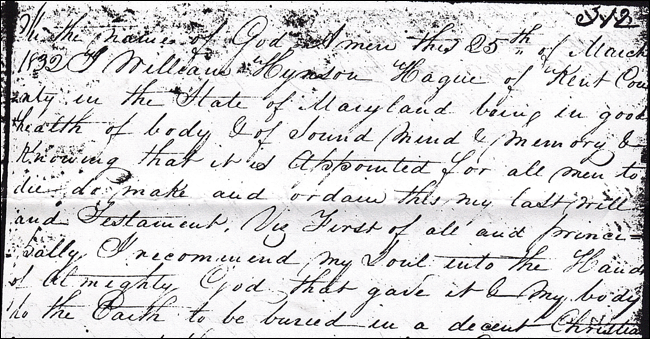 312
In the name of God Amen this 25th of March
1832 I William Hynson Hague of Kent Cou
nty in the State of Maryland being in good
health of body & of Sound Mind & Memory &
Knowing that it is Appointed for all men to
die do make and ordain this my last Will
and Testament. Viz First of all and prince=
=pally I recommend my Soul into the Hands
of Almighty God that gave it & my body
to the Earth to be buried in a decent Christian